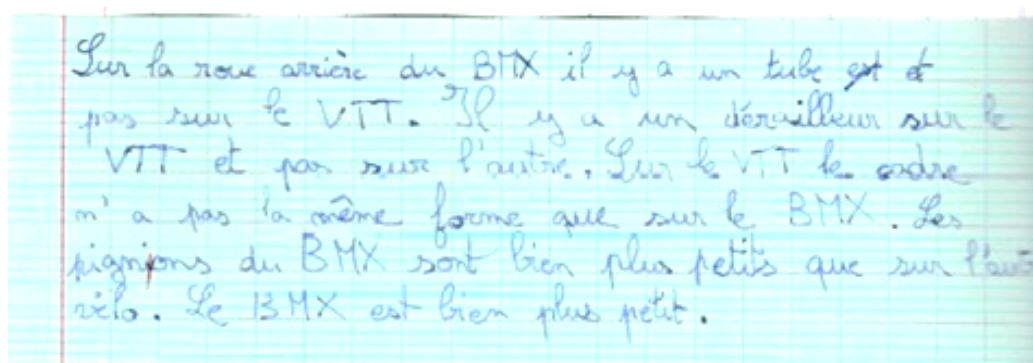 Sur la roue arrière du BMX il y a un tube est et
pas sur le VTT. Il y a un dérailleur sur le
VTT et pas sur l'autre. Sur le VTT le cadre
n'a pas la même forme que sur le BMX. Les
pignions du BMX sont bien plus petits que sur l'aut
vélo. Le BMX est bien plus petit.